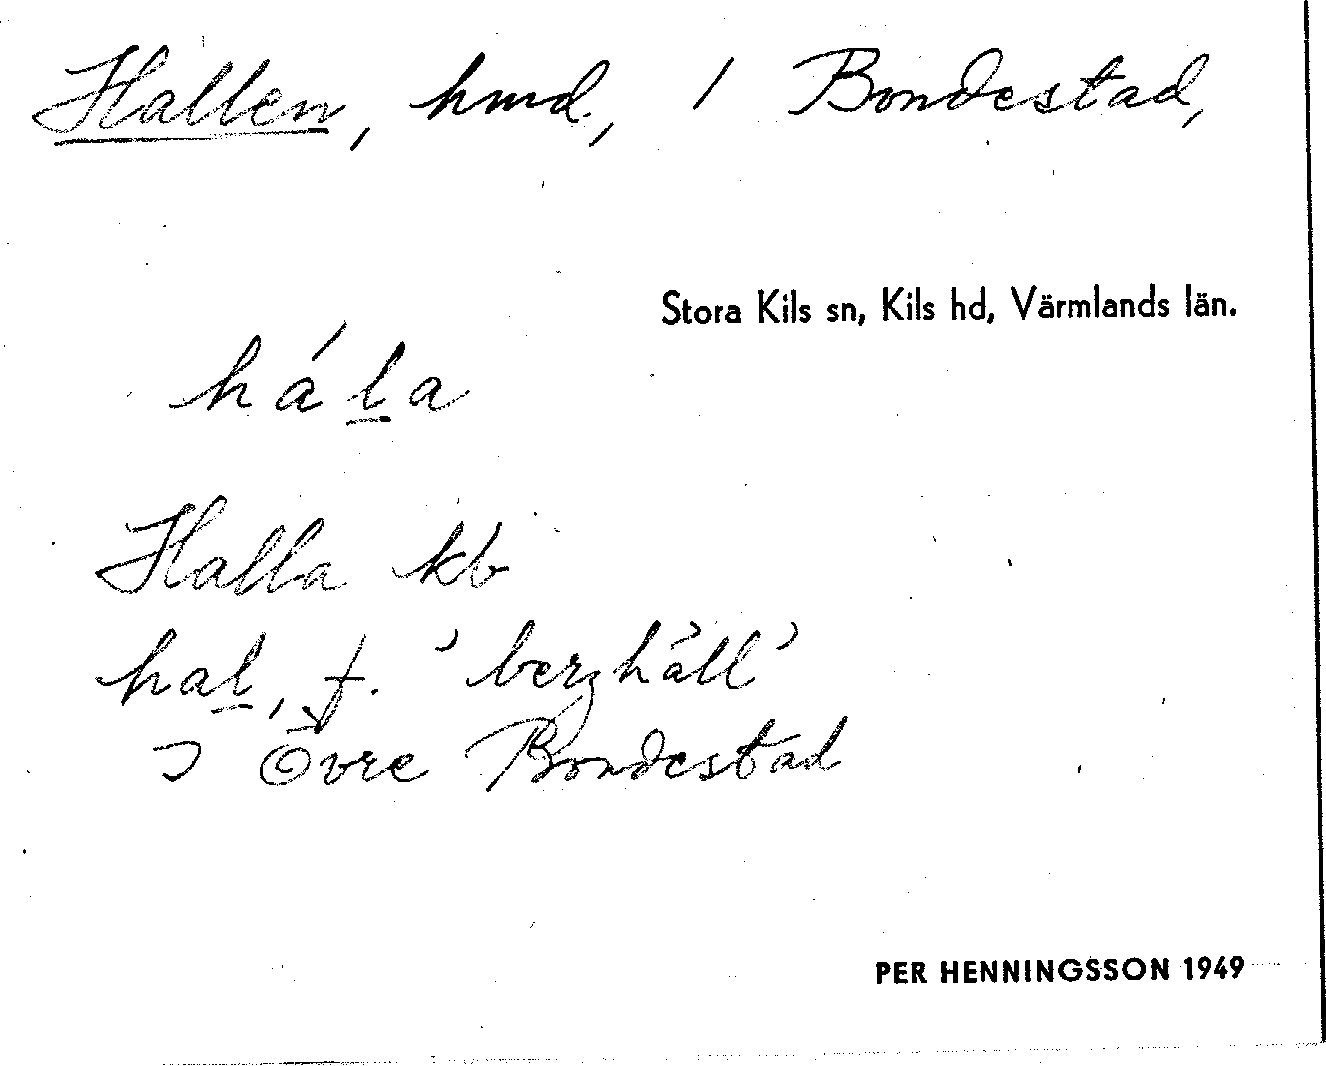 Hallen, hmd., i Bondestad,
Stora Kils sn, Kils hd, Värmlands län.
há́l̲a
Halla kb
hal̲, f. 'berghäll'
Övre Bondestad
PER HENNINGSSON 1949